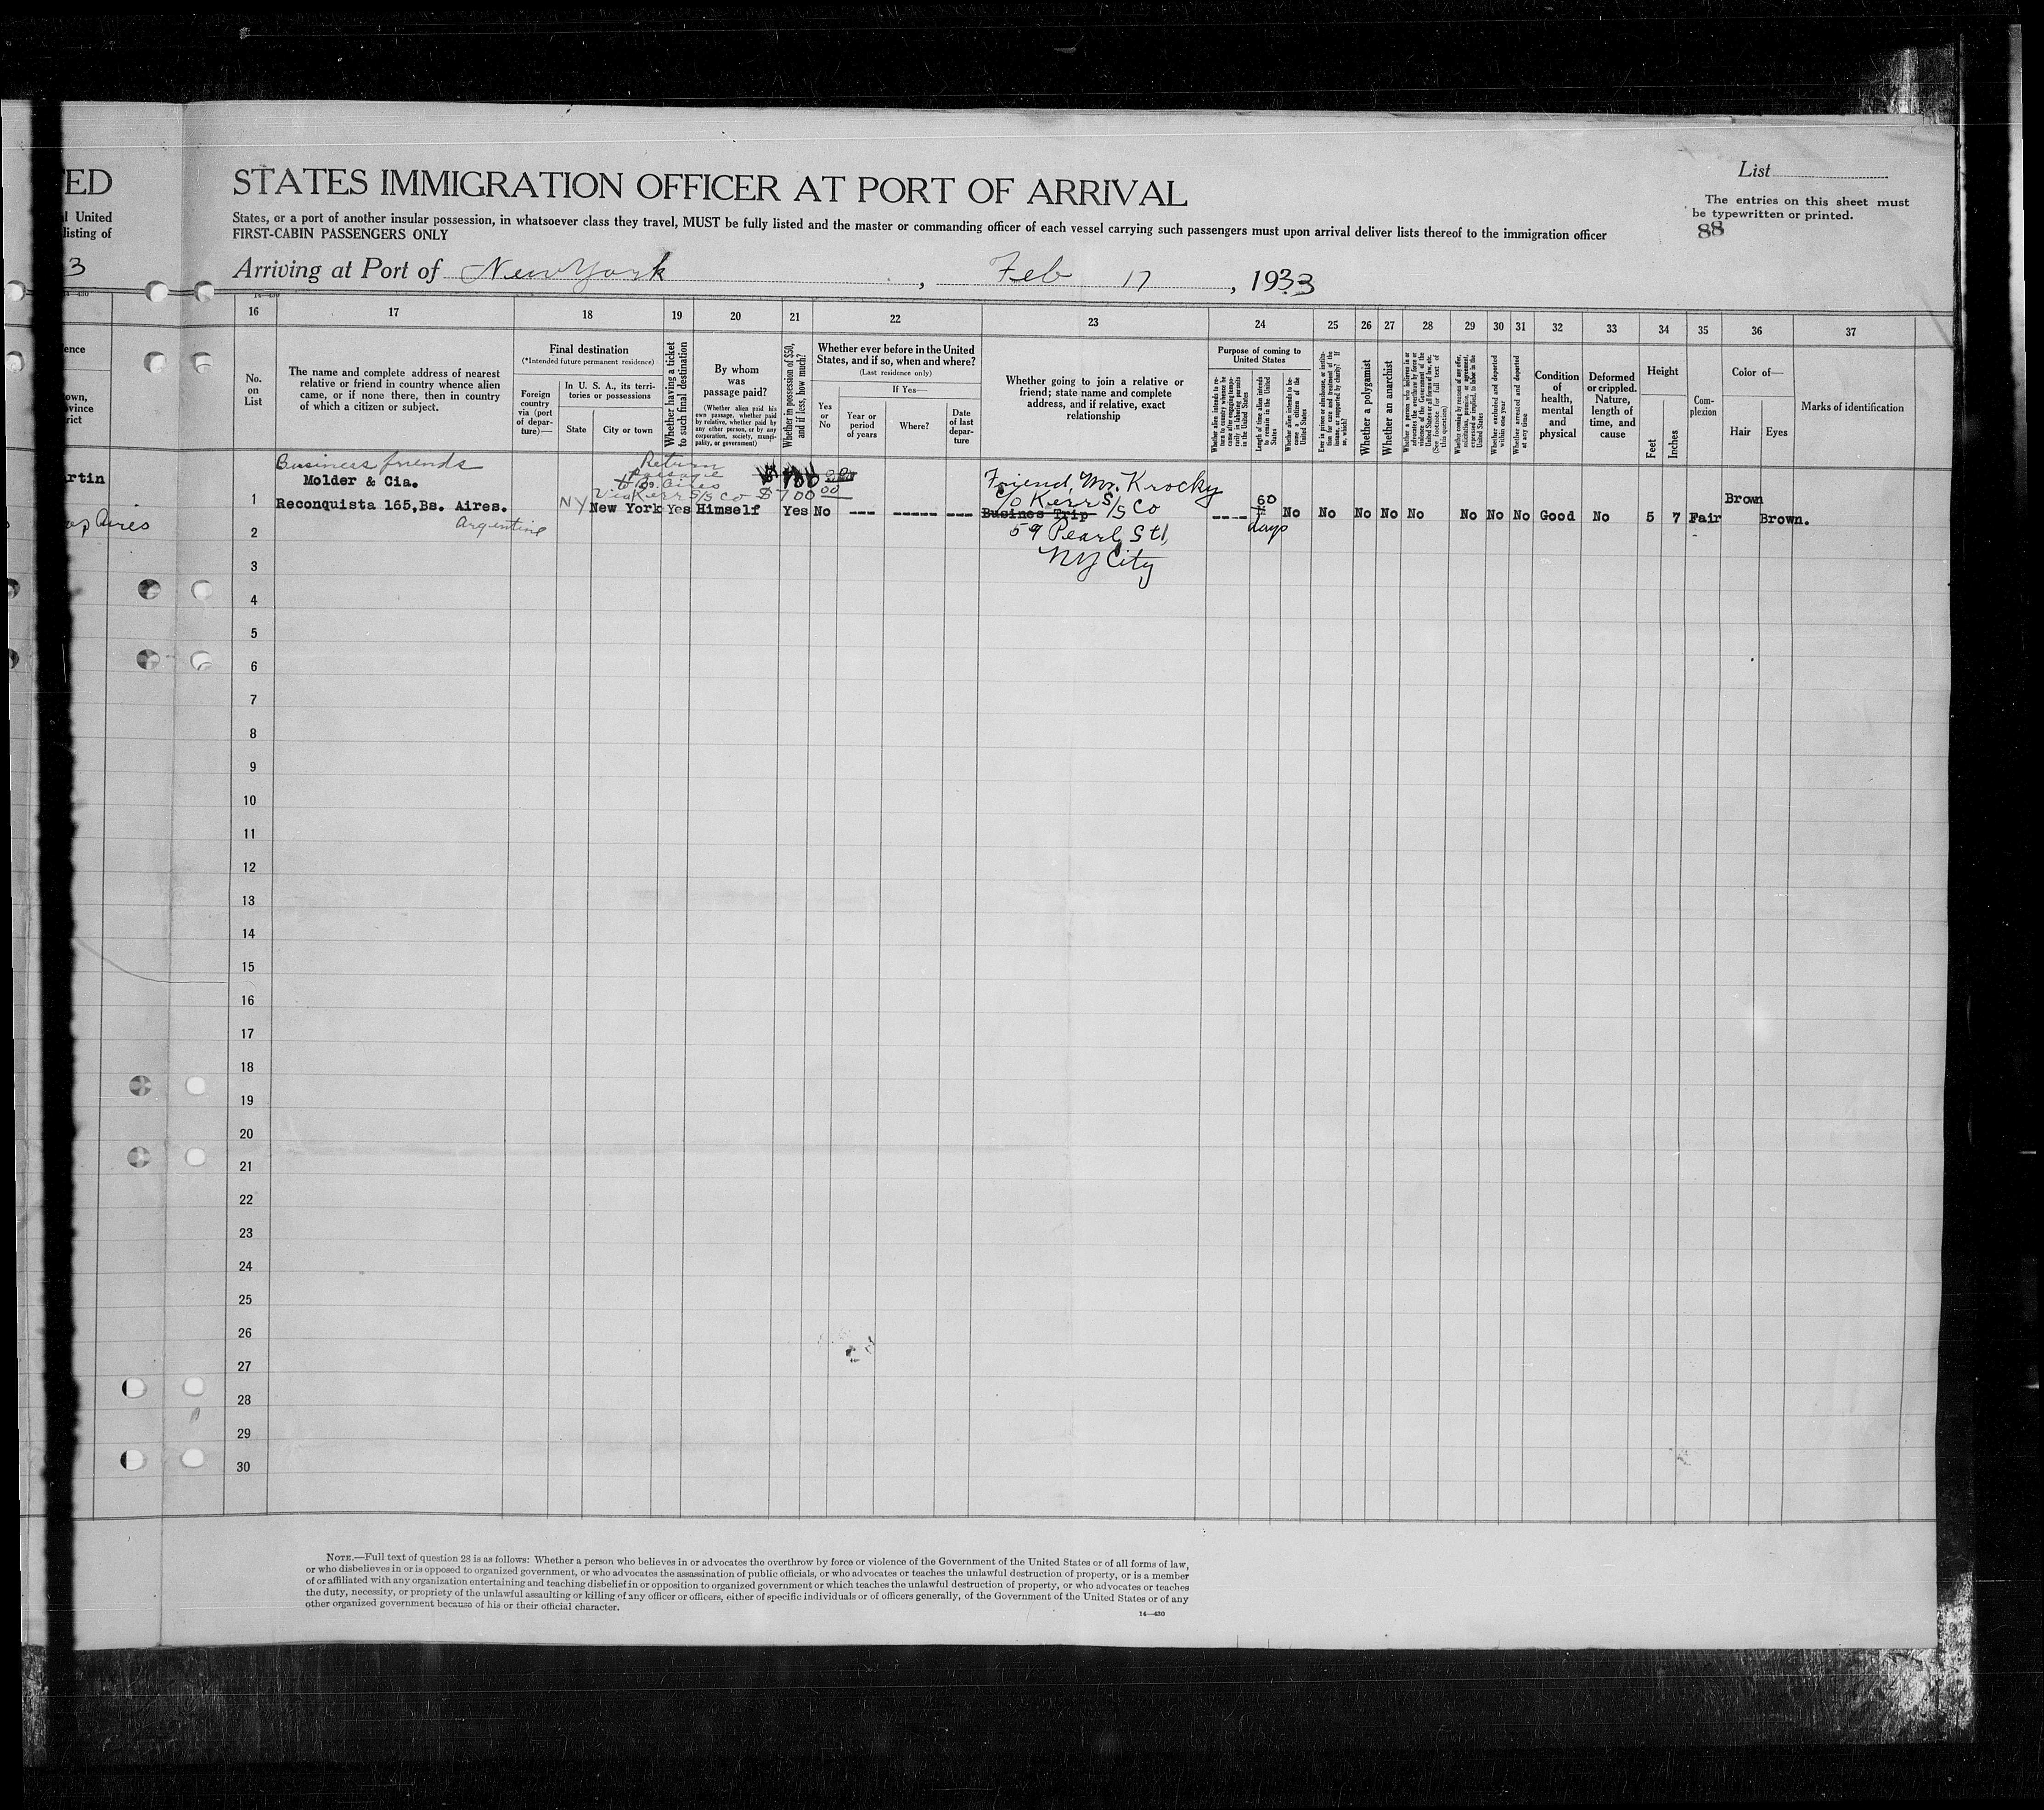 ED
STATES IMMIGRATION OFFICER AT PORT OF ARRIVAL
List
The entries on this sheet must
be typewritten or printed.
88
l United
listing of
States, or a port of another insular possession, in whatsoever class they travel, MUST be fully listed and the master or commanding officer of each vessel carrying such passengers must upon arrival deliver lists thereof to the immigration officer
FIRST-CABIN PASSENGERS ONLY
3
Arriving at Port of New York, Feb 17, 1933
16 17 18 19 20 21 22 23 24 25 26 27 28 29 30 31 32 33 34 35 36 37
No.
on
List
The name and complete address of nearest
relative or friend in country whence alien
came, or if none there, then in country
of which a citizen or subject.
Final destination
(*Intended future permanent residence)
Foreign
country
via (port
of depar-
ture)—
In U. S. A., its terri-
tories or possessions
State
City or town
Whether having a ticket
to such final destination
By whom
was
passage paid?
(Whether alien paid his
own passage, whether paid
by relative, whether paid by
any other person, or by any
corporation, society, munici-
pality, or government)
Whether in possession of $50,
and if less, how much?
Whether ever before in the United
States, and if so, when and where?
(Last residence only)
Yes
or
No
If Yes—
Year or
period
of years
Where?
Date
of last
depar-
ture
Whether going to join a relative or
friend; state name and complete
address, and if relative, exact
relationship
Purpose of coming to
United States
Whether alien intends to re-
turn to country whence he
came after engaging tempo-
rarily in laboring pursuits
in the United States
Length of time alien intends
to remain in the United
States
Whether alien intends to be-
come a citizen of the
United States
Ever in prison or almshouse, or institu-
tion for care and treatment of the
insane, or supported by charity? If
so, which?
Whether a polygamist
Whether an anarchist
Whether a person who believes in or
advocates the overthrow by force or
violence of the Government of the
United States or all forms of law, etc.
(See footnote for full text of
this question)
Whether coming by reason of any offer,
solicitation, promise, or agreement,
expressed or implied, to labor in the
United States
Whether excluded and deported
within one year
Whether arrested and deported
at any time
Condition
of
health,
mental
and
physical
Deformed
or crippled.
Nature,
length of
time, and
cause
Height
Feet
Inches
Com-
plexion
Color of—
Hair
Eyes
Marks of identification
rtin
Aires
Business friends
Molder & Cia.
Reconquista 165, Bs. Aires.
Argentine
Return
Passage
to Bs. Aires
Via Kerr S/S Co $700 00
1 N Y New York Yes Himself Yes No --- ----- --- Busines Trip ---- 60 days No No No No No No No No Good No 5 7 Fair Brown Brown.
Friend, Mr. Krocky
c/o Kerr S/S Co
59 Pearl St,
NY City
2
3
4
5
6
7
8
9
10
11
12
13
14
15
16
17
18
19
20
21
22
23
24
25
26
27
28
29
30
NOTE.—Full text of question 28 is as follows: Whether a person who believes in or advocates the overthrow by force or violence of the Government of the United States or of all forms of law,
or who disbelieves in or is opposed to organized government, or who advocates the assassination of public officials, or who advocates or teaches the unlawful destruction of property, or is a member
of or affiliated with any organization entertaining and teaching disbelief in or opposition to organized government or which teaches the unlawful destruction of property, or who advocates or teaches
the duty, necessity, or propriety of the unlawful assaulting or killing of any officer or officers, either of specific individuals or of officers generally, of the Government of the United States or of any
other organized government because of his or their official character.
14—430